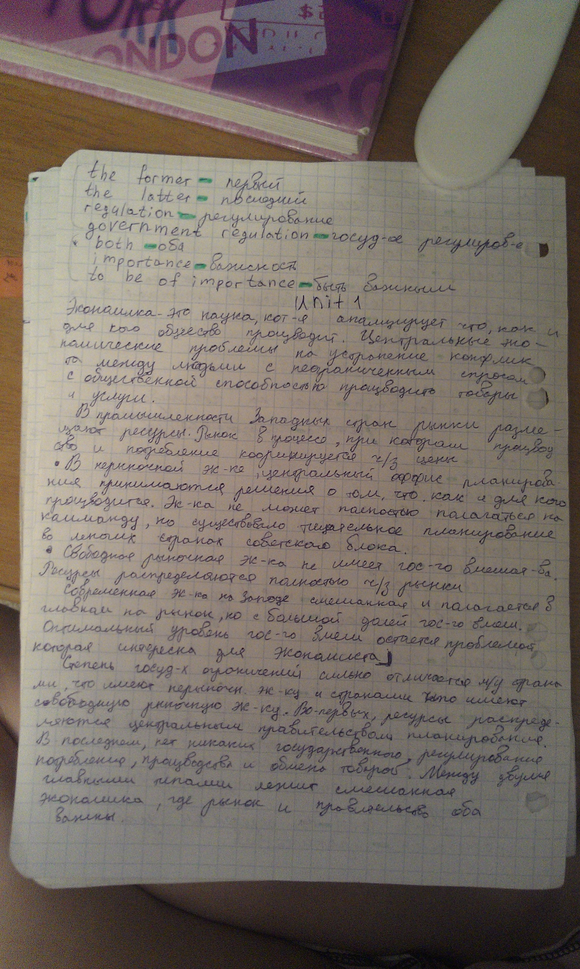 YORK
LONDON
TO
the former - первый
the latter - последний
regulation - регулирование
government regulation - госуд-ое регулиров-е
• both - оба
importance - важность
to be of importance - быть важным
Unit 1
Экономика - это наука, кот-я анализирует что, как и
для кого общество производит. Центральные эко-
номические проблемы на устранение конфлик
та между людьми с неограниченным спросом
с общественной способностью процводить товары
и услуги.
В промышленности Западных стран рынки разме-
щают ресурсы. Рынок в процессе, при котором процвод
ство и потребление координируется ч/з цены
• В нерыночной эк-ке, центральный оффис планирова-
ния принимаются решения о том, что, как и для кого
производится. Эк-ка не может полностью полагаться на
комманду, но существовало тщательное планирование
во многих странах советского блока.
• Свободная рыночная эк-ка не имеет гос-го вмешат-ва.
Ресурсы распределяются полностью ч/з рынки
Современная эк-ка на Западе смешанная и полагается в
главном на рынок, но с большой долей гос-го вмеш.
Оптимальный уровень гос-го вмеш остается проблемой
которая интересна для экономиста
Степень госуд-х ограничений сильно отличается м/у стран
ми, что имеют нерыночн. эк-ку и странами что имеют
свободную рыночную эк-ку. Во-первых, ресурсы распреде-
ляются центральным правительством планирования.
В последнем, нет никаких государственного, регулирование
потребления, процводства и обмена товаров. Между двумя
главными типами лежит смешанная
экономика, где рынок и правительство оба
важны.